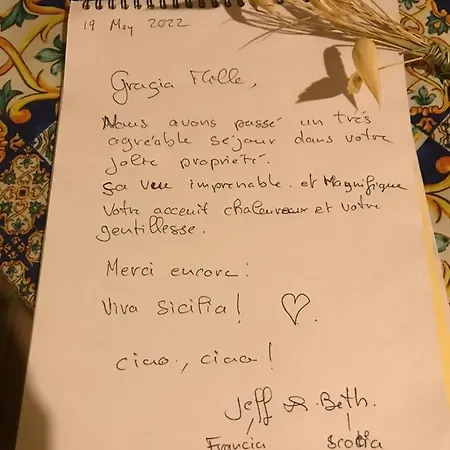 19 May 2022
Grazia Mille,
Nous avons passé un trés
agréable séjour dans votre
jolie propriété.
Sa vue imprenable. et Magnifique
Votre acceuil chaleureux et votre
gentillesse.
Merci encore!
Viva Sicilia! ♡.
ciao, ciao!
Jeff & Beth.
Francia Scotia